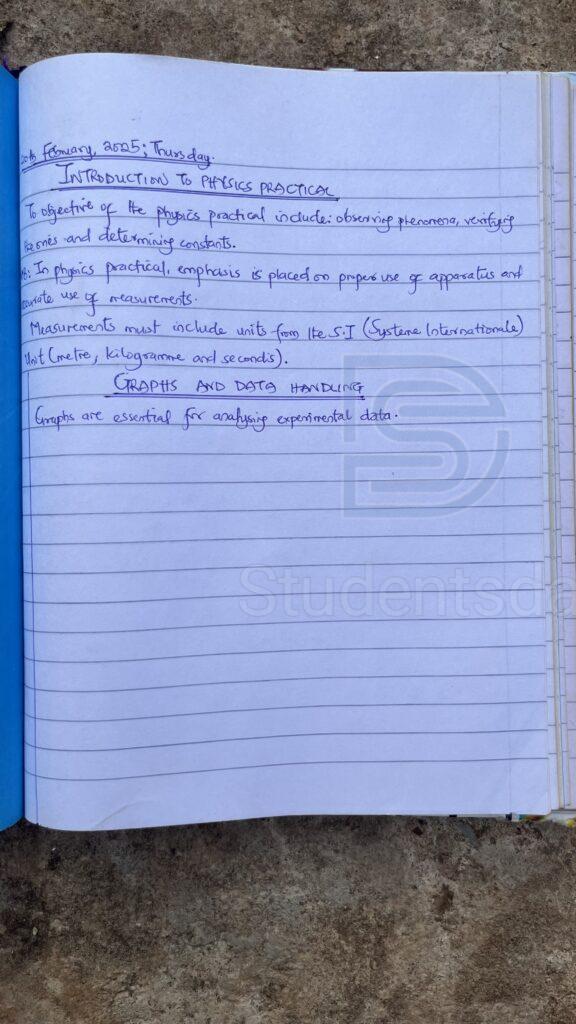 20th February, 2025; Thursday.
INTRODUCTION TO PHYSICS PRACTICAL
To objective of the physics practical include: observing phenomena, verifying
theories and determining constants.
NB: In physics practical, emphasis is placed on proper use of apparatus and
accurate use of measurements.
Measurements must include units from the S.I (Systeme Internationale)
Unit (metre, kilogramme and seconds).
GRAPHS AND DATA HANDLING
Graphs are essential for analysing experimental data.
Studentsda